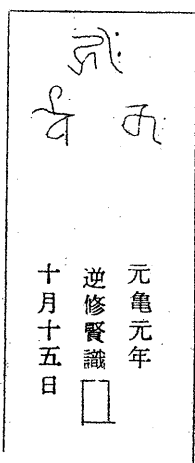 元亀元年
逆修賢識□
十月十五日